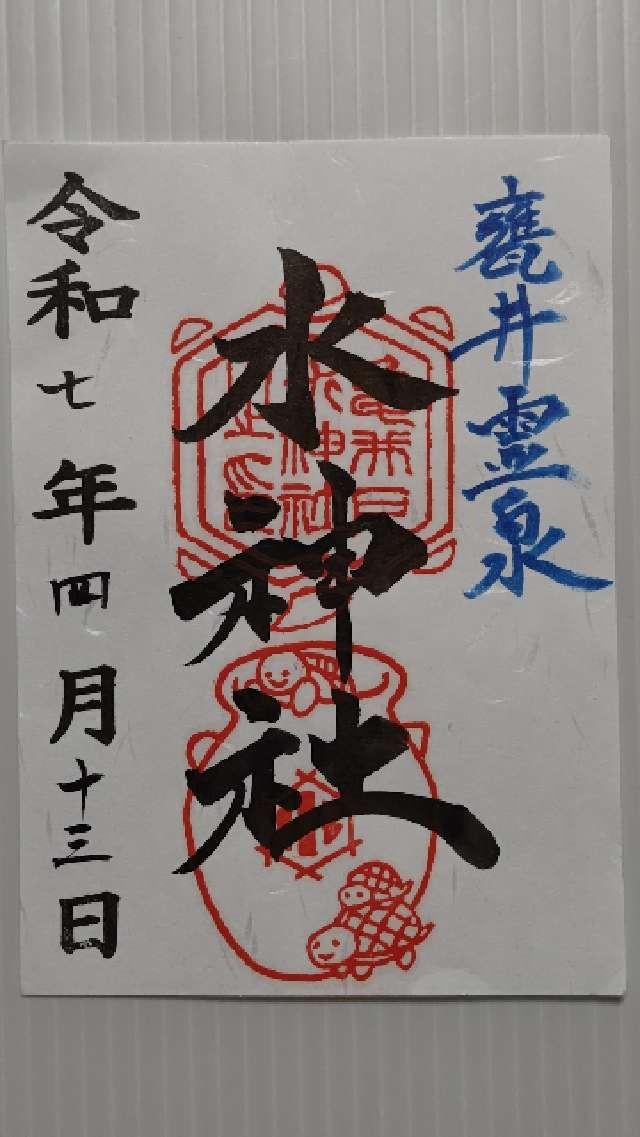 甕井霊泉
水神社
令和七年四月十三日